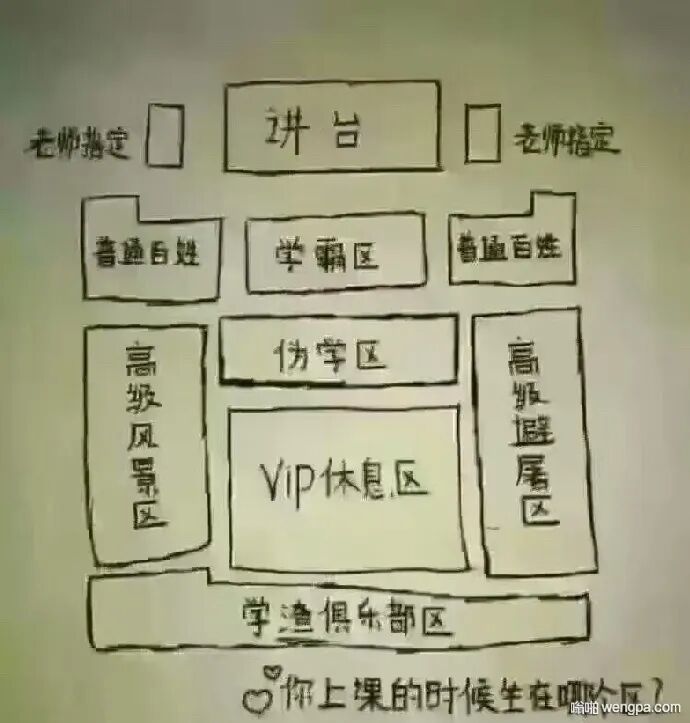 讲台
老师指定
老师指定
普通百姓
学霸区
普通百姓
伪学区
高级风景区
高级避屠区
Vip休息区
学渣俱乐部区
你上课的时候生在哪个区?
嗡啪 wengpa.com